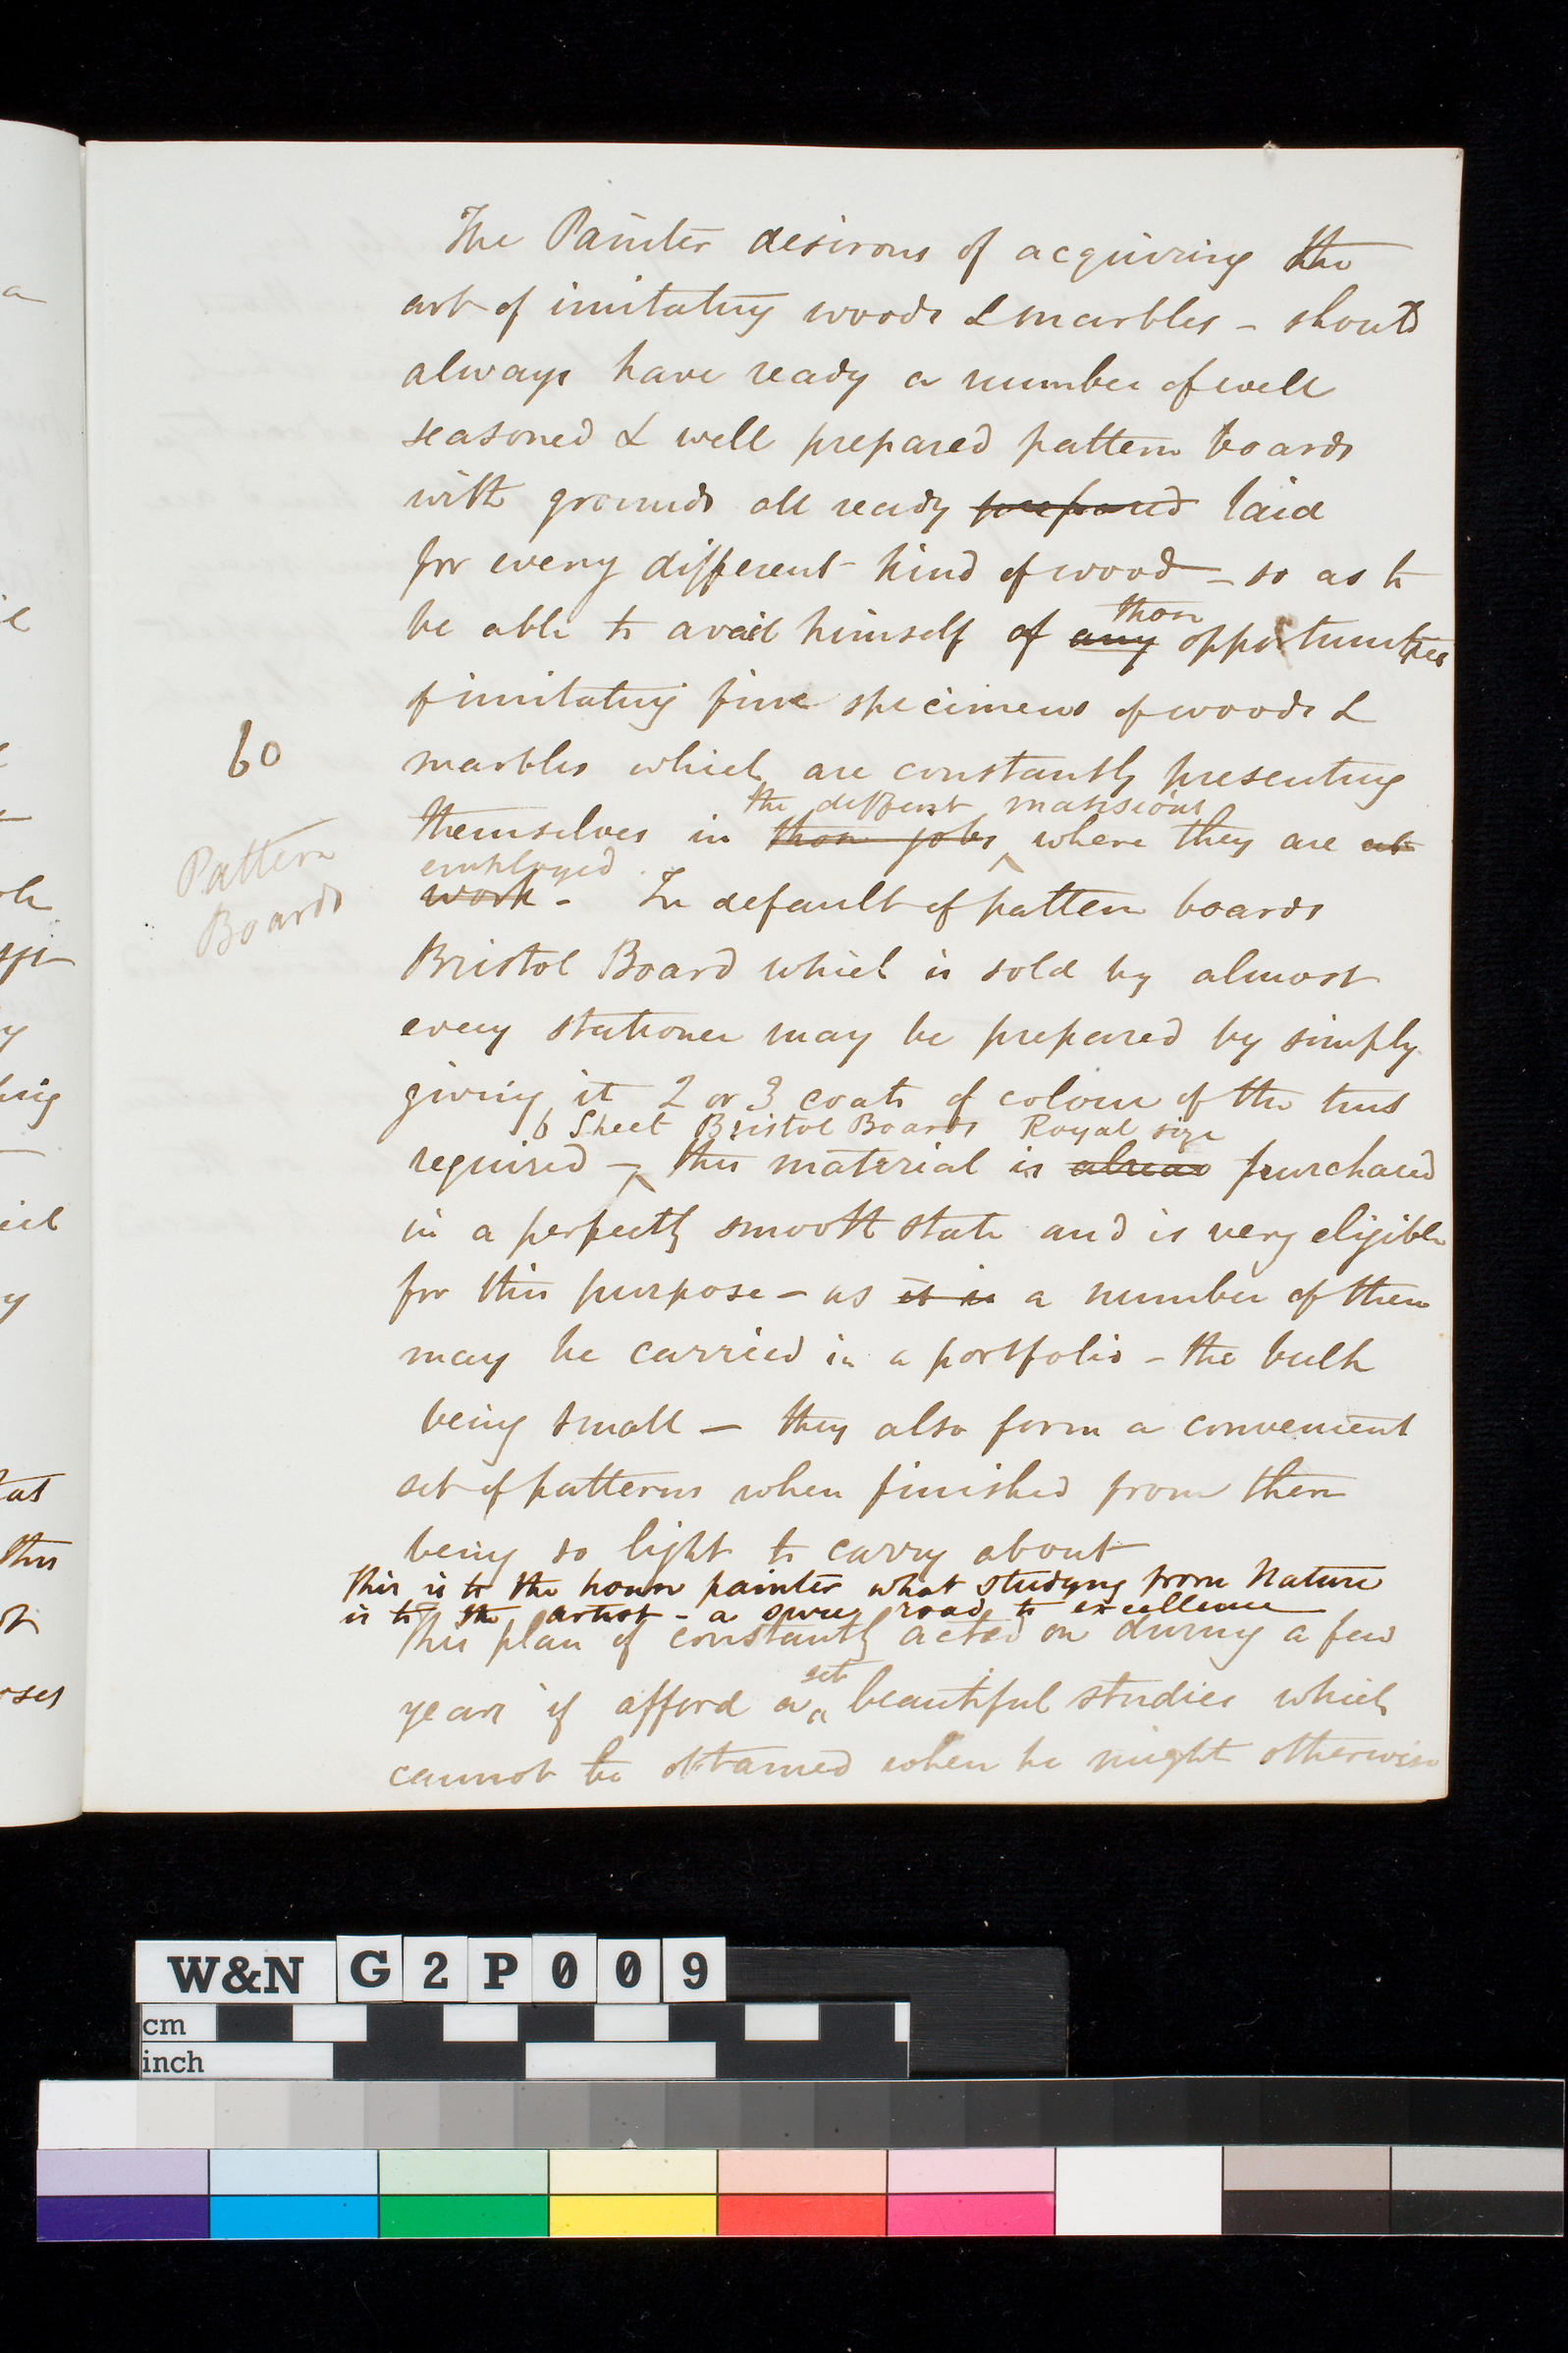 The Painter desirous of acquiring the
art of imitating woods & marbles - should
always have ready a number of well
seasoned & well prepared pattern boards
with grounds all ready prepared laid
for every different kind of wood - so as to
those
be able to avail himself of any opportunities
of imitating fine specimens of woods &
60
marbles which are constantly presenting
the different mansions
themselves in those jobs where they are at
Pattern
Boards
employed
work - In default of pattern boards
Bristol Board which is sold by almost
every stationer may be prepared by simply
giving it 2 or 3 coats of colour of the tints
6 Sheet Bristol Boards Royal size
required - this material is purchased
in a perfectly smooth state and is very eligible
for this purpose - as it is a number of them
may be carried in a portfolio - the bulk
being small - they also form a convenient
set of patterns when finished from them
being so light to carry about
this is to the house painter what studying from Nature
is to the artist - a sure road to excellence
This plan if constantly acted on during a few
set
years if afford a a beautiful studies which
cannot be obtained when he might otherwise
W&N G2P009
cm
inch